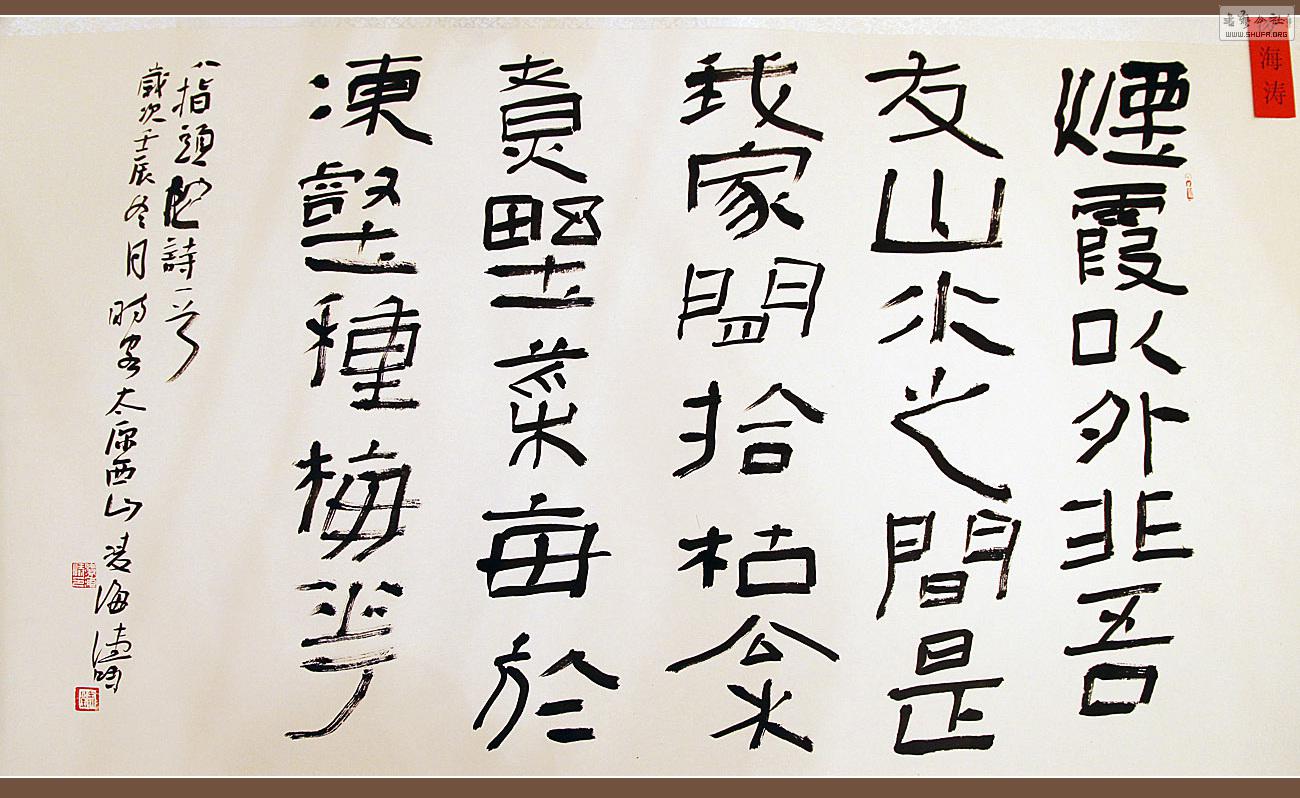 煙霞以外非吾
友山水之間是
我家閒拾枯枀
煮野菜每於
凍壑種梅花
八指頭陀詩一首
歲次壬辰冬月時客太原西山凌海濤
海涛
WWW.SHUFA.ORG